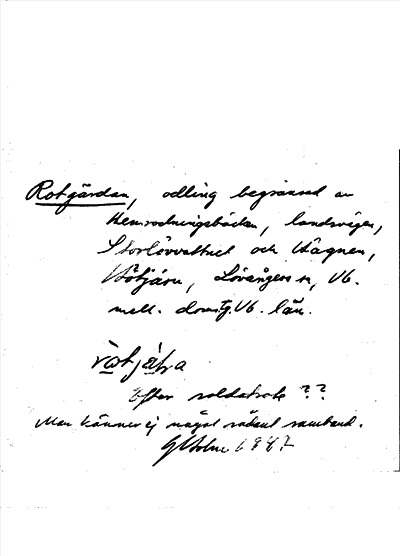 Rotgärdan, odling begränsad av
Hemrodningsbäcken, landsvägen,
Storlövvattnet och Vägnen,
Lövångers sn, Vb.
mell. domsg. Vb. län.
Efter soldatrote ??
Man känner ej något sådant samband.
1987